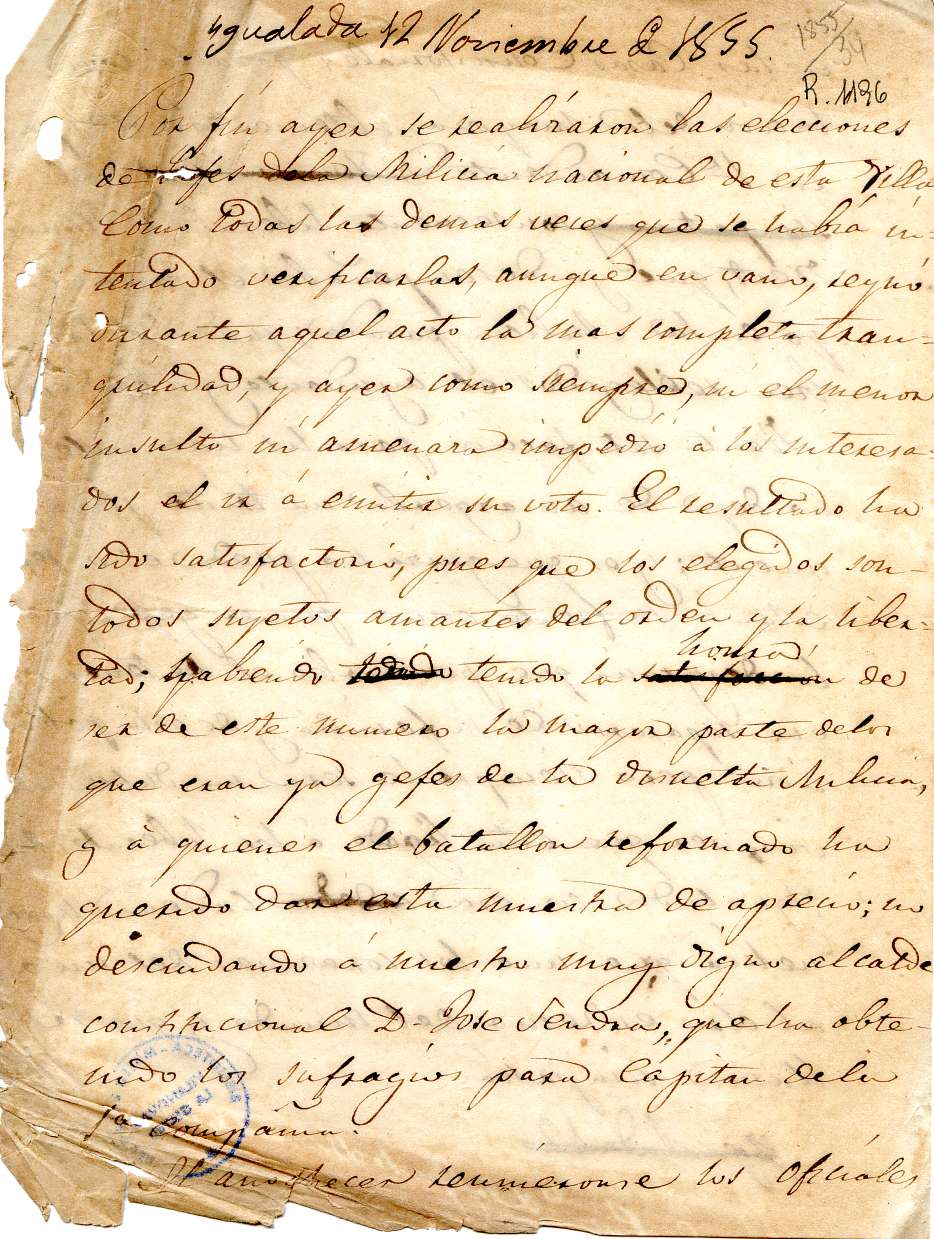 Ygualada 12 Noviembre d 1855.
1855/34
R. 1136
Por fin ayer se realizaron las elecciones
de Gefes dela Milicia nacional de esta Villa
Como todas las demas veces que se habia in-
tentado verificarlas, aunque en vano, reynó
durante aquel acto la mas completa tran-
quilidad, y ayer como siempre, ni el menor
insulto ni amenaza impedió á los interesa-
dos el ir á emitir su voto. El resultado ha
sido satisfactorio, pues que los elegidos son
todos sujetos amantes del orden y la liber-
tad; habiendo tenido tenido la satisfaccion honra de
ser de este numero la mayor parte delos
que eran ya gefes de la disuelta Milicia,
y á quienes el batallon reformado ha
querido dar esta muestra de aprecio; no
descuidando á nuestro muy digno alcalde
constitucional D. Jose Sendra, que ha obte-
nido los sufragios para Capitan dela
1a compañia.
Al anochecer reunieronse los oficiales